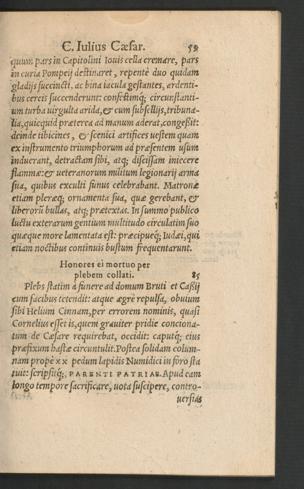 C. Iulius Cæsar. 59
quum pars in Capitolini Iouis cella cremare, pars
in curia Pompeij destinaret, repentè duo quidam
gladijs succincti, ac bina iacula gestantes, ardenti-
bus cereis succenderunt: confestimq; circunstanti-
um turba uirgulta arida, & cum subsellijs, tribuna-
lia, quicquid præterea ad manum aderat, congessit:
deinde tibicines, & scenici artifices uestem quam
ex instrumento triumphorum ad præsentem usum
induerant, detractam sibi, atq; discissam iniecere
flammæ: & ueteranorum militum legionarij arma
sua, quibus exculti funus celebrabant. Matronæ
etiam pleræq; ornamenta sua, quæ gerebant, &
liberorū bullas, atq; prætextas. In summo publico
luctu exterarum gentium multitudo circulatim suo
quæque more lamentata est: præcipueq; Iudæi, qui
etiam noctibus continuis bustum frequentarunt.
Honores ei mortuo per
plebem collati. 85
Plebs statim à funere ad domum Bruti et Caßij
cum facibus tetendit: atque ægrè repulsa, obuium
sibi Helium Cinnam, per errorem nominis, quasi
Cornelius esset is, quem grauiter pridie conciona-
tum de Cæsare requirebat, occidit: caputq; eius
præfixum hastæ circuntulit. Postea solidam colum-
nam propè xx pedum lapidis Numidici in foro sta
tuit: scripsitq;, PARENTI PATRIAE. Apud eam
longo tempore sacrificare, uota suscipere, contro-
uersias